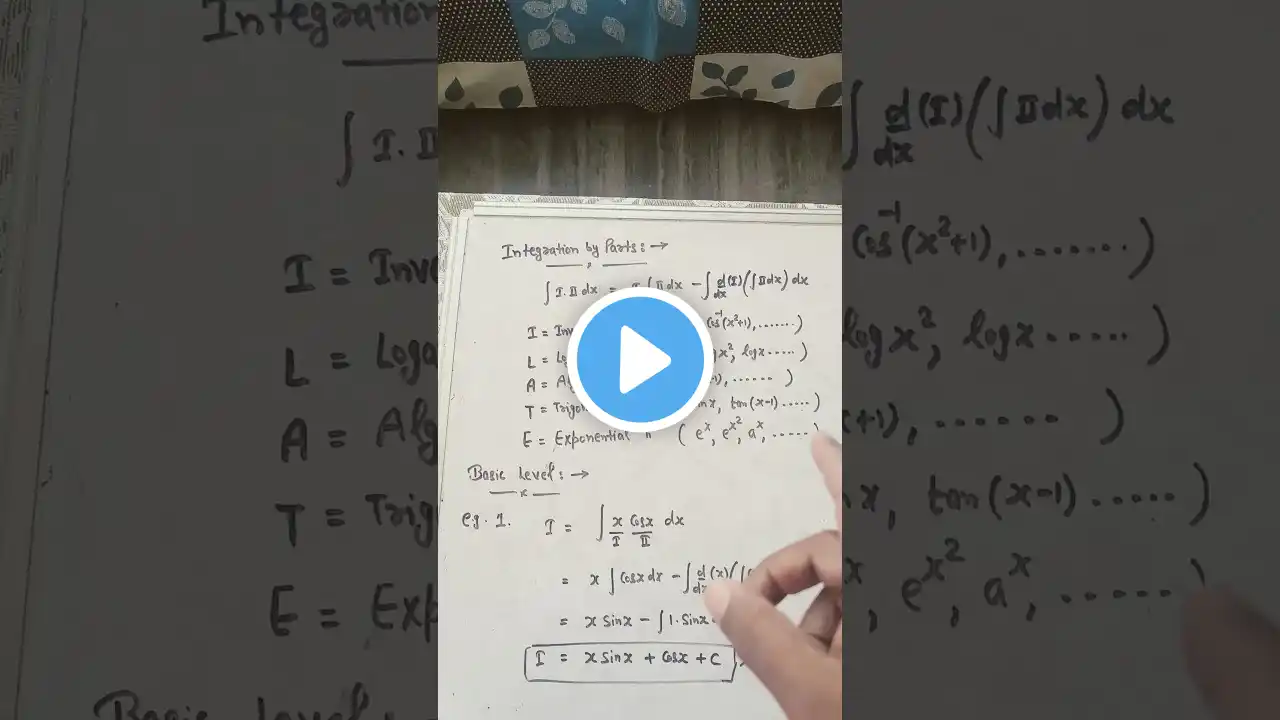 Integration by Parts: →
∫ I. II dx = I ∫ II dx − ∫ d/dx (I) (∫ II dx) dx
I = Cos⁻¹(x²+1), ....... )
L = logx ..... )
A = ...... )
T = tan(x-1) ..... )
E = Exponential " ( eˣ, e^x², aˣ, ..... )
Basic Level: →
eg. 1. I = ∫ x Cosx dx
I II
= x ∫ Cosx dx − ∫ d/dx (x) (∫
= x Sinx − ∫ 1. Sinx
I = x Sinx + Cosx + C